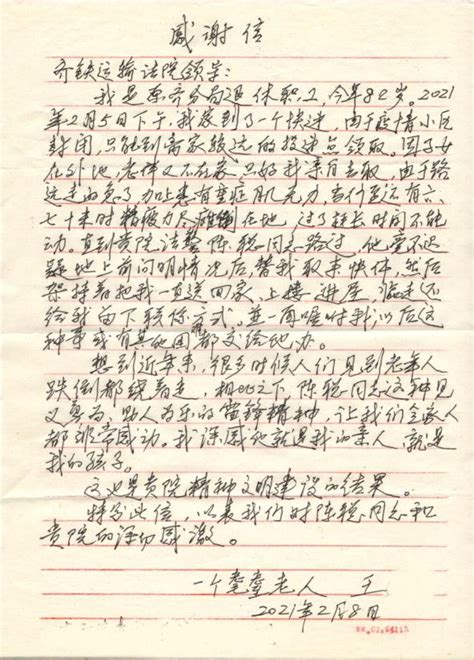 感谢信
齐铁运输法院领导:
我是原齐分局退休职工,今年82岁。2021
年2月5日下午,我接到了一个快递,由于疫情小区
封闭,只能到离家较远的投递点领取。因子女
在外地,老伴又不在家,只好我亲自去取,由于路
远走的急了加上患有重症肌无力,当行至还有六、
七十米时精疲力尽瘫倒在地,过了挺长时间不能
动。直到贵院法警陈聪同志路过,他毫不迟
疑地上前问明情况后替我取来快件,然后
架扶着把我一直送回家,上楼进屋,临走还
给我留下联系方式。并一再嘱咐我以后这
种事或有其他困难都交给他办。
想到近年来,很多时候人们见到老年人
跌倒都绕着走,相比之下陈聪同志这种见
义勇为,助人为乐的雷锋精神,让我们全家人
都非常感动。我深感他就是我的亲人,就是
我的孩子。
这也是贵院精神文明建设的结果。
特为此信,以表我们对陈聪同志和
贵院的深切感激。
一个耄耋老人 王
2021年2月8日